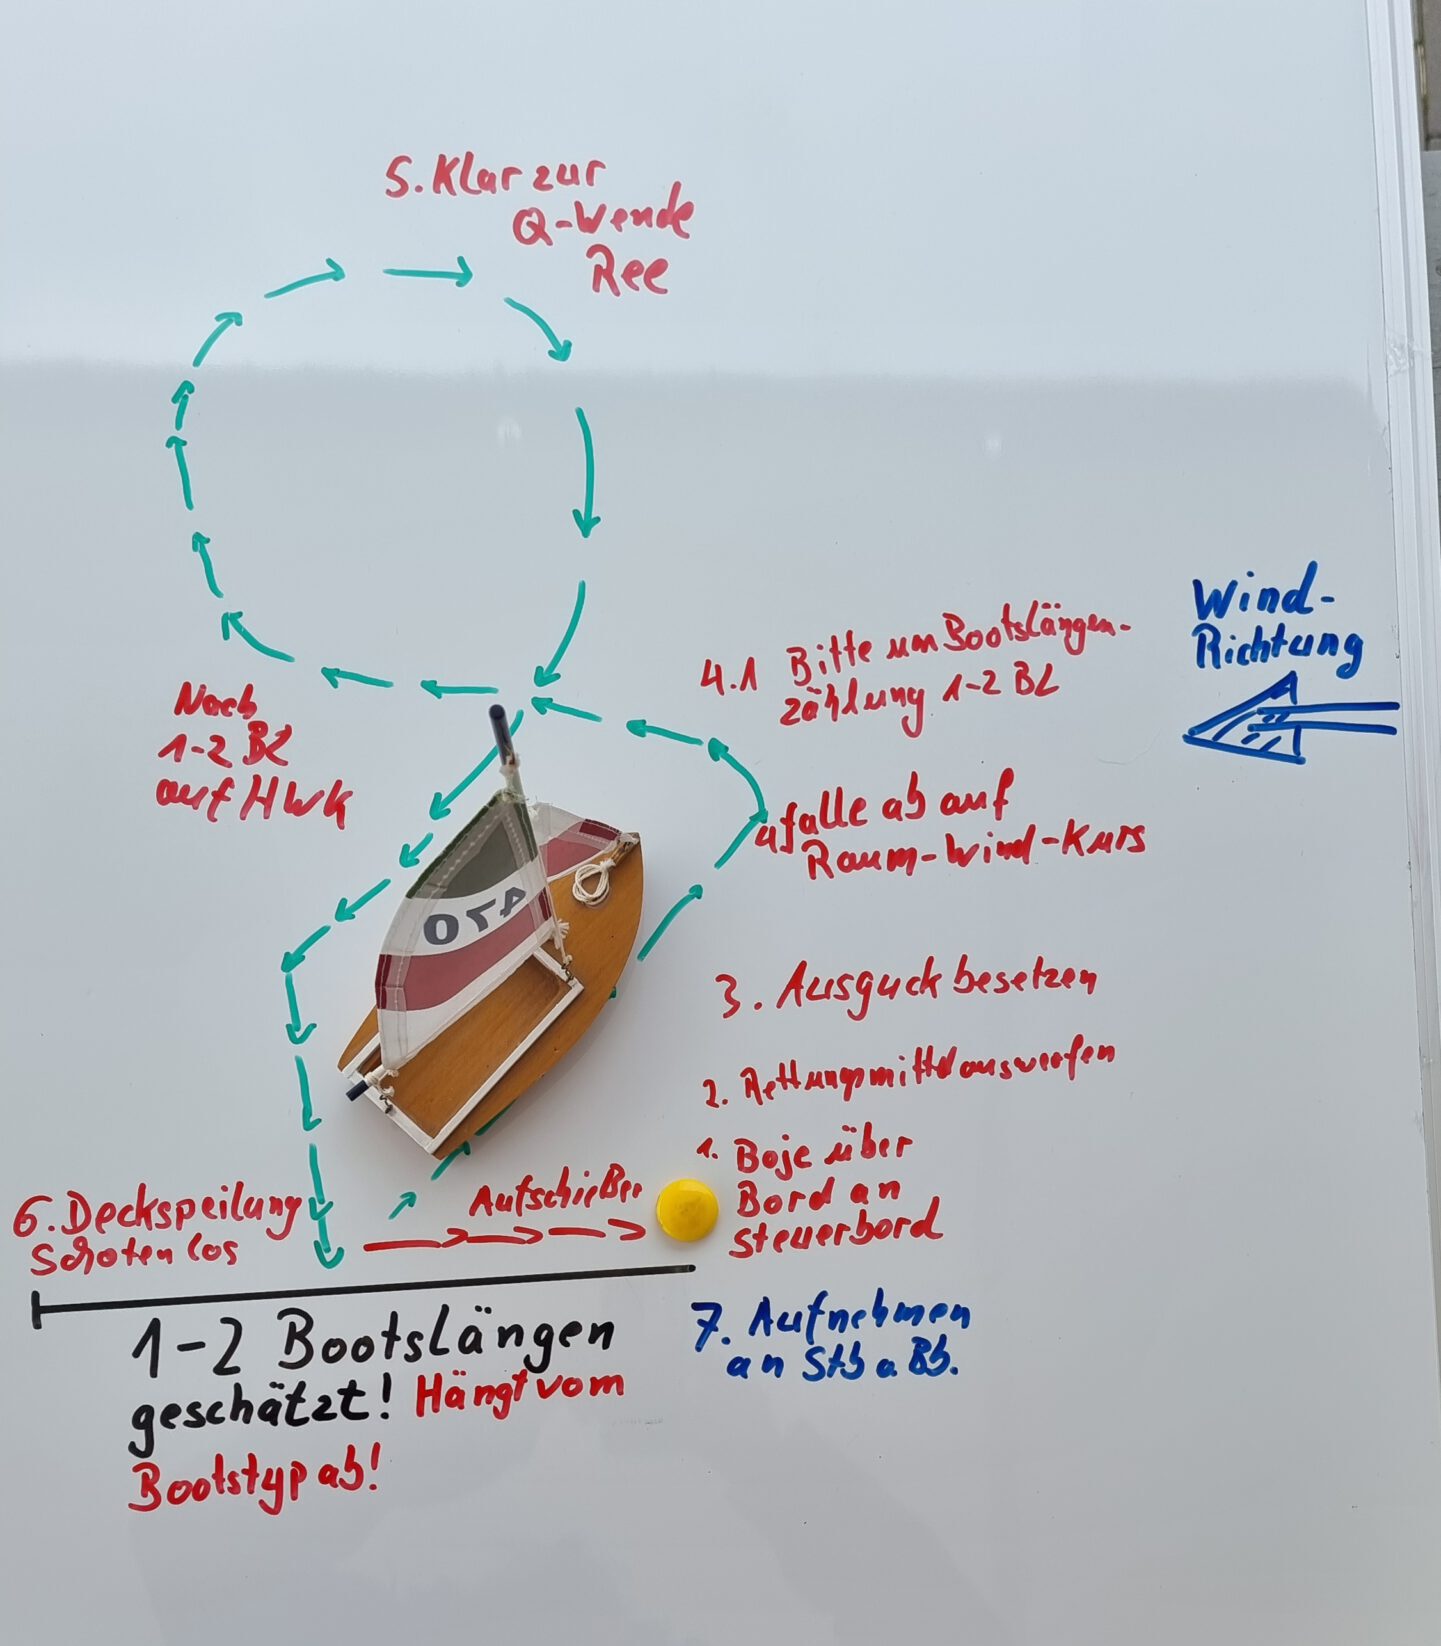 5. Klar zur
Q-Wende
Ree
Wind-
Richtung
4.1 Bitte um Bootslängen-
zählung 1-2 BL
Nach
1-2 BL
auf HWK
4 falle ab auf
Raum-Wind-Kurs
470
3. Ausguck besetzen
2. Rettungsmittel auswerfen
1. Boje über
Bord an
Steuerbord
Aufschießer
6. Deckspeilung
Schoten los
1-2 Bootslängen
geschätzt! Hängt vom
Bootstyp ab!
7. Aufnehmen
an Stb o Bb.